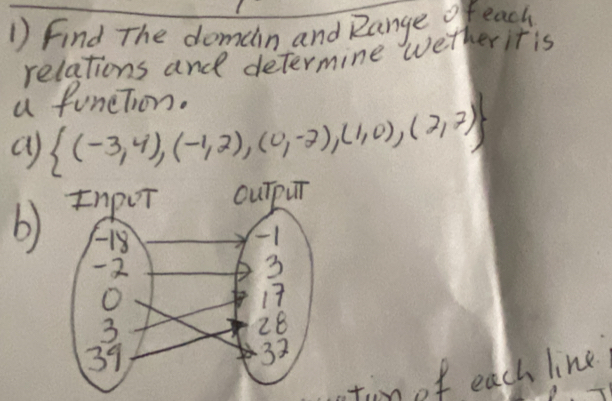 1) Find The domain and Range of each
relations and determine wether it is
a function.
a) {(-3,4),(-1,2),(0,-2),(1,0),(2,2)}
b) Input Output
-18 -1
-2 3
0 17
3 28
39 32
of each line